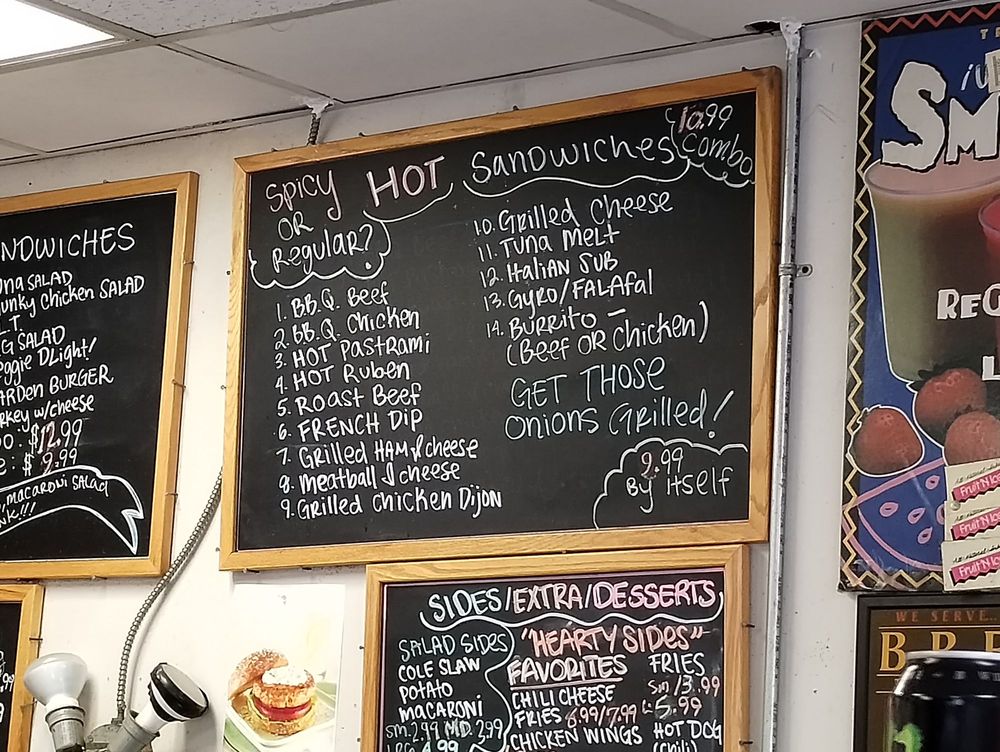 NDWICHES
una SALAD
unky Chicken SALAD
L.T.
G SALAD
eggie DLight!
ARDen BURGER
rkey w/cheese
o: $12.99
e: $9.99
macaroni Salad
NK!!!
Spicy
OR
Regular?
HOT Sandwiches
Combo
1. BB.Q. Beef
2. BB.Q. Chicken
3. HOT Pastrami
4. HOT Ruben
5. ROAST Beef
6. FRENCH DIP
7. Grilled HAM & cheese
8. Meatball & cheese
9. Grilled Chicken Dijon
10. Grilled Cheese
11. Tuna Melt
12. Italian Sub
13. Gyro/FALAfal
14. Burrito –
(Beef OR Chicken)
GET THOSE
Onions Grilled!
9.99
By itself
SIDES/EXTRA/DESSERTS
SALAD SIDES
COLE SLAW
POTATO
MACARONI
sm. 2.99 MD. 3.99
"HEARTY SIDES"
FAVORITES
CHILI CHEESE
FRIES 6.99/7.99
CHICKEN WINGS
FRIES
Sm/3.99
L 5.99
HOT DOG
(chili)
SM
ReC
L
Fruit'N Ice
Fruit'N Ice
Fruit'N Ice
WE SERVE
BRE